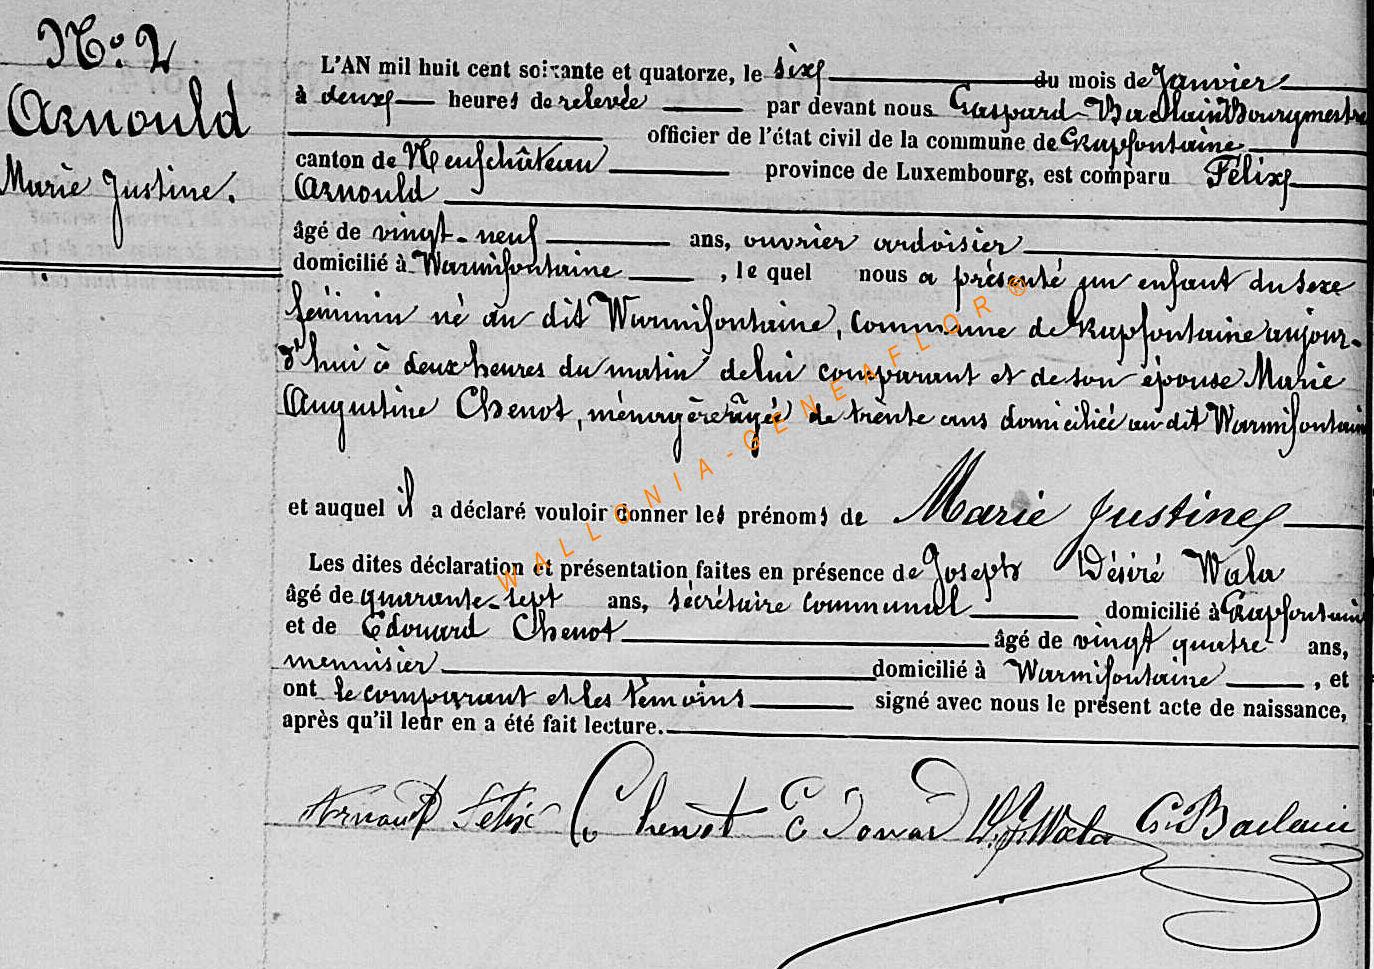 N.o 2
Arnould
Marie Justine.
L'AN mil huit cent soixante et quatorze, le six du mois de Janvier
à deux heures de relevée par devant nous Gaspard Baclain Bourgmestre
officier de l'état civil de la commune de Grapfontaine
canton de Neufchâteau province de Luxembourg, est comparu Félix
Arnould
âgé de vingt-neuf ans, ouvrier ardoisier
domicilié à Warmifontaine, le quel nous a présenté un enfant du sexe
féminin né au dit Warmifontaine, commune de Grapfontaine aujour-
d'hui à deux heures du matin de lui comparant et de son épouse Marie
Augustine Chenot, ménagère âgée de trente ans domiciliée au dit Warmifontaine
et auquel il a déclaré vouloir donner les prénoms de Marie Justine
Les dites déclaration et présentation faites en présence de Joseph Désiré Wala
âgé de quarante-sept ans, sécrétaire communal domicilié à Grapfontaine
et de Edouard Chenot âgé de vingt quatre ans,
menuisier domicilié à Warmifontaine, et
ont le comparant et les témoins signé avec nous le présent acte de naissance,
après qu'il leur en a été fait lecture.
Arnould Felix Chenot Edouard Wala G. Baclain
WALLONIA-GENEAFLOR®